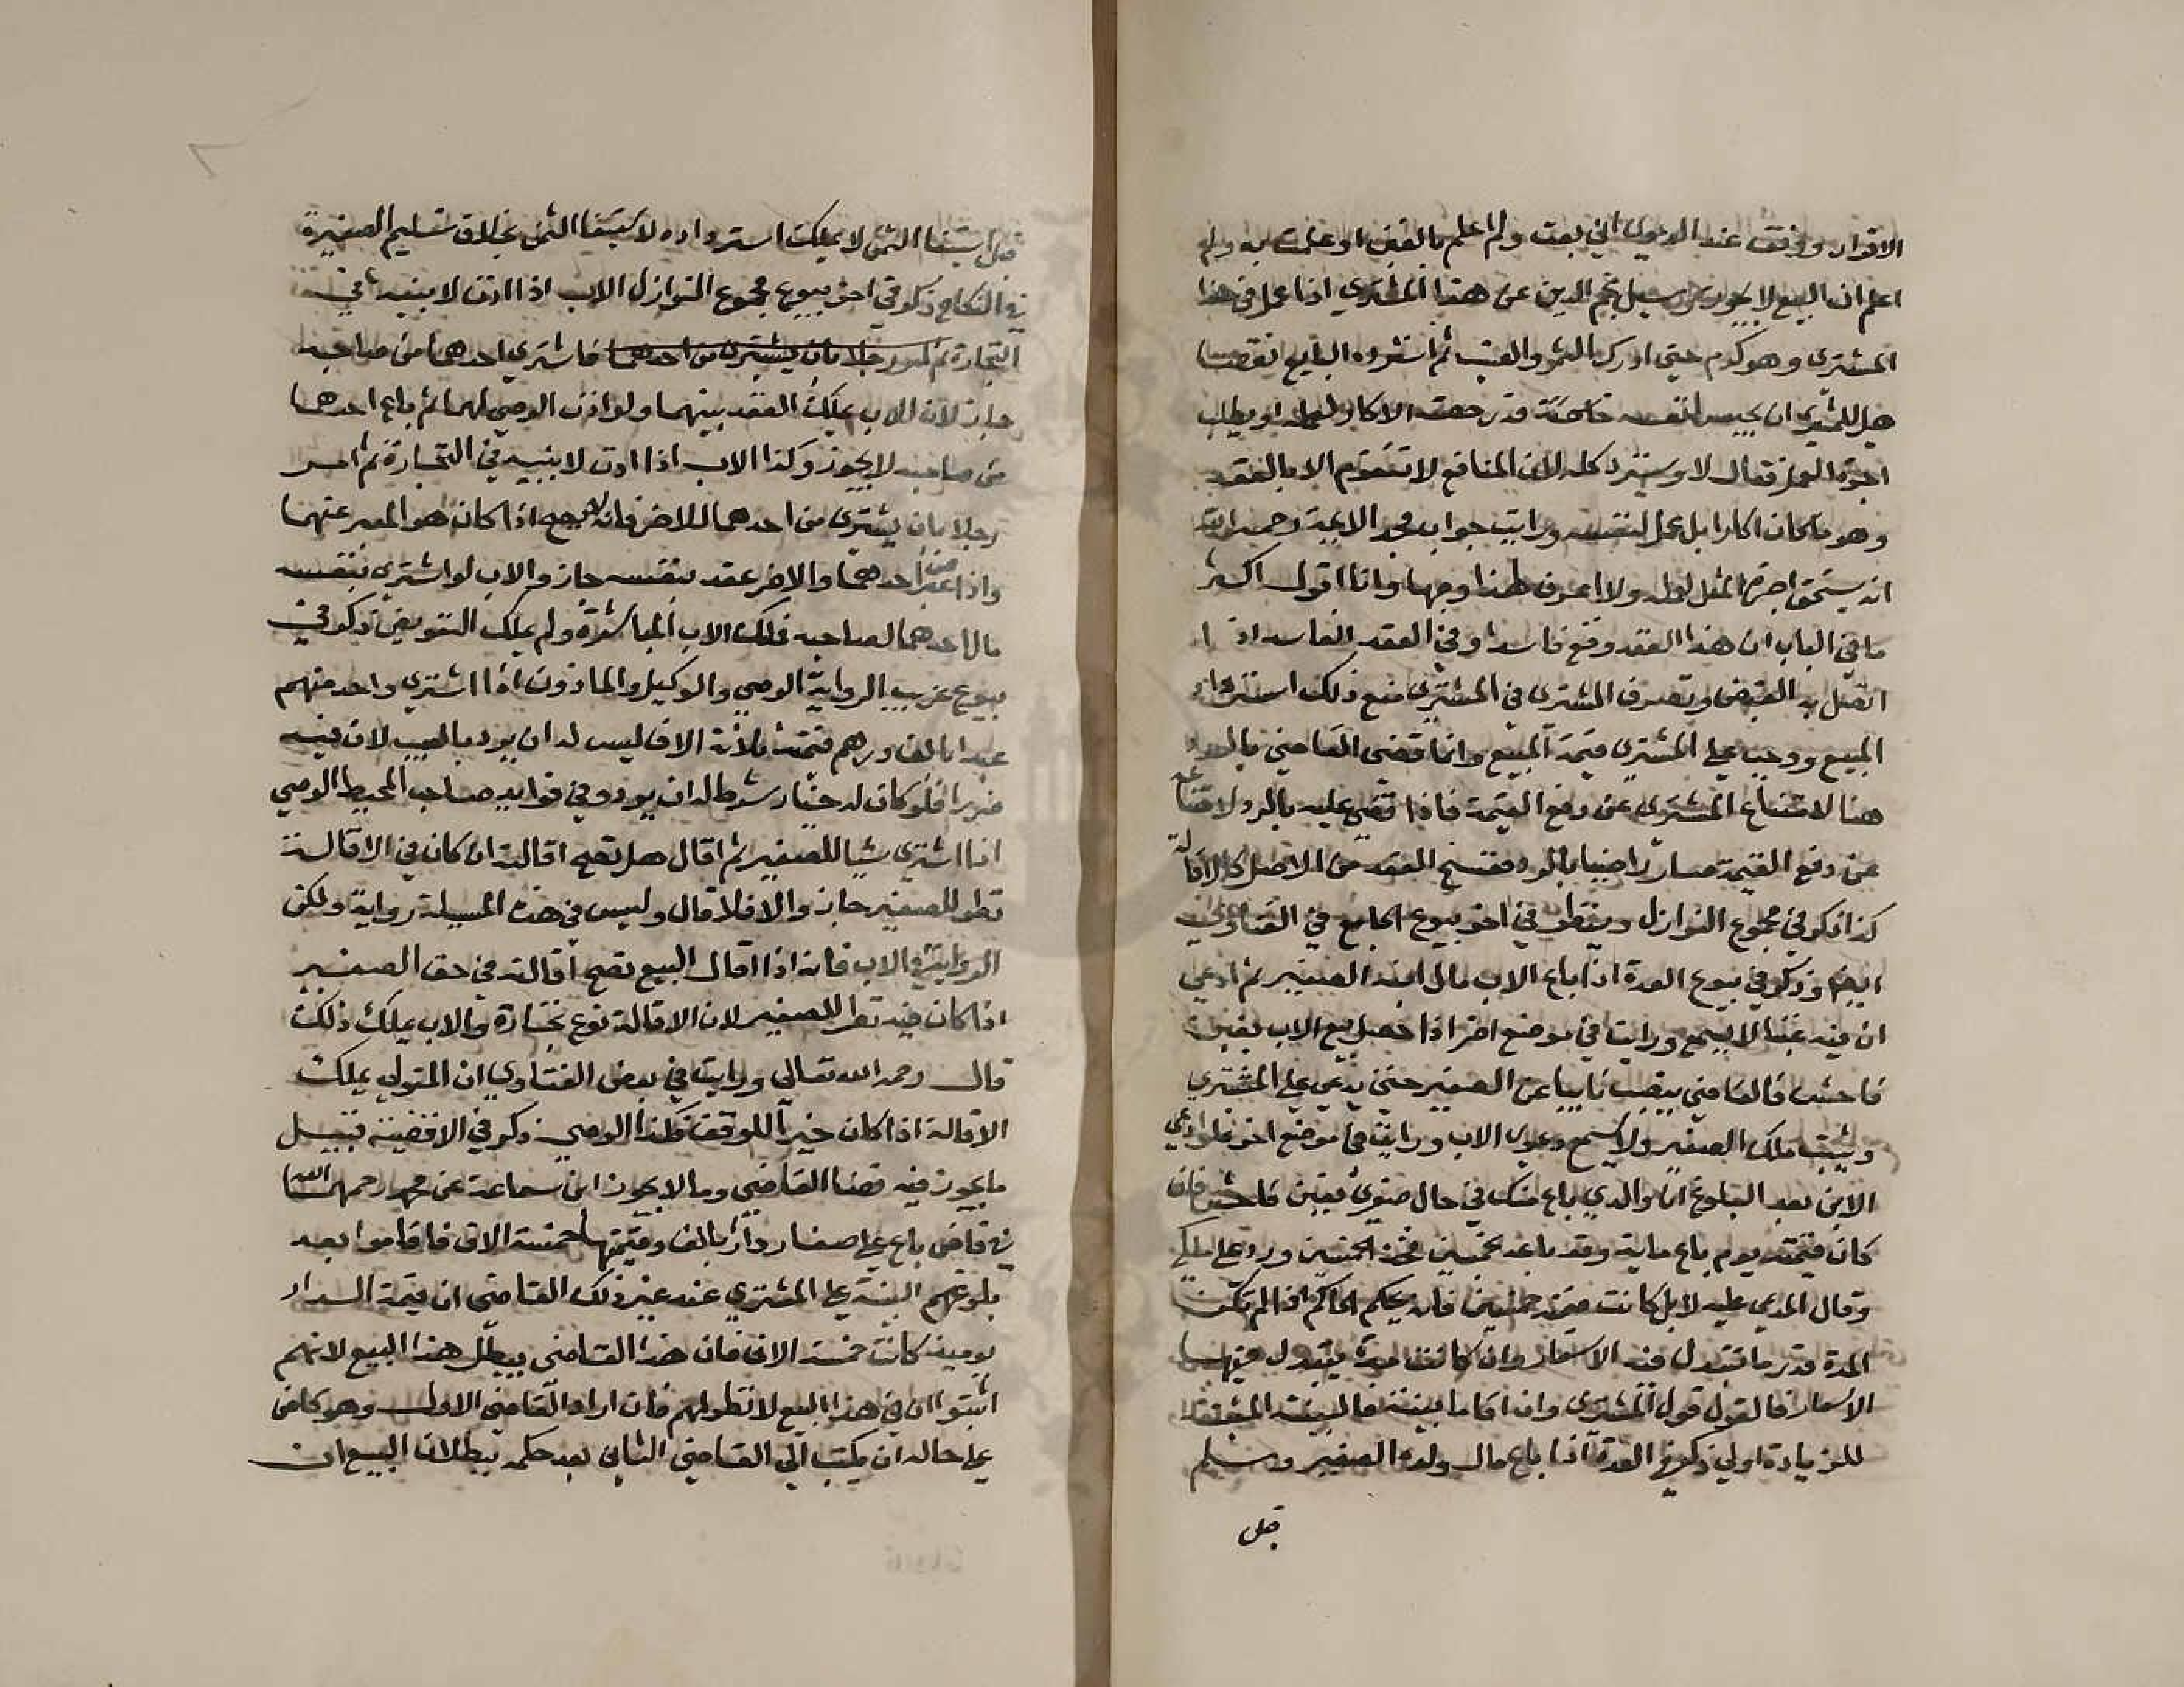 الاقرار ووفق عند الدعوى اني بعت ولم اعلم بالغبن او علمت به ولم
اعلم ان البيع لا يجوز سيل نجم الدين عن هذا المشتري اذا عمل في هذا
المشترى وهو كرم حتى ادرك الثمر والعنب ثم استرده البايع
هل للمشتري ان يحبس لنفسه قدر حصة الاكار لعمله او يطلب
اجرة العمل فقال لا ويسترد كله لان المنافع لا تتقوم الا بالعقد
وهو ما كان اكارا بل عمل لنفسه ورايت جواب الايمة رحمه الله
انه يستحق اجرة المثل لعمله ولا اعرف لهذا وجها وانا اقول اكثر
ما في الباب ان هذا العقد وقع فاسدا وفي العقد الفاسد اذا
اتصل به القبض وتصرف المشترى في المشترى منع ذلك استرداد
المبيع ووجب على المشترى قيمة المبيع وانما قضى القاضي بالرد
هنا لامتناع المشترى عن دفع القيمة فاذا قضى عليه بالرد لامتناعه
عن دفع القيمة صار راضيا بالرد فيفسخ العقد من الاصل كالاقالة
كذا ذكر في مجموع النوازل وينظر في اخر بيوع الجامع في الفتاوى
ايضا وذكر في بيوع العدة اذا باع الاب مال ابنه الصغير ثم ادعى
ان فيه غبنا لا يسمع ورايت في موضع اخر اذا حصل بيع الاب بغبن
فاحش فالقاضي ينصب نايبا عن الصغير حتى يدعي على المشتري
ويثبت ملك الصغير ولا يسمع دعوى الاب ورايت في موضع اخر فلو ادعى
الابن بعد البلوغ ان والدي باع منك في حال صغري بغبن فاحش فان
كان قيمته يوم باع ماية وقد باعه بخمسين فخذ الخمسين ورد على ملكي
وقال المدعي عليه لا بل كانت قيمته خمسين فانه يحكم الحاكم اذا لم تكن
المدة قدر ما تتبدل فيه الاسعار وان كانت مدة يتبدل فيها
الاسعار فالقول قول المشترى وان اقاما بينة فالبينة المثبتة
للزيادة اولى ذكر في العدة اذا باع مال ولده الصغير وسلم
قبل
قبل استيفا الثمن لا يملك استرداده لاستيفا الثمن بخلاف تسليم الصغيرة
في النكاح ذكر في اخر بيوع مجموع النوازل الاب اذا اذن لابنيه في
التجارة ثم امر رجلا بان يشترى من احدهما فاشترى احدهما من صاحبه
جاز لان الاب يملك العقد بينهما ولو اذن الوصي لهما ثم باع احدهما
من صاحبه لا يجوز وكذا الاب اذا اذن لابنيه في التجارة ثم امر
رجلا بان يشترى من احدهما للاخر فانه لا يصح اذا كان هو المعبر عنهما
واذا عبر عن احدهما والاخر عقد بنفسه جاز والاب لو اشترى بنفسه
مال احدهما لصاحبه فملك الاب المباشرة ولم يملك التفويض ذكر في
بيوع غريب الرواية الوصي والوكيل والماذون اذا اشترى واحد منهم
عبدا بالف درهم قيمته ثلاثة الاف ليس له ان يرد بالعيب لان فيه
ضررا فلو كان له خيار شرط له ان يرد وفي فوايد صاحب المحيط الوصي
اذا اشترى شيا للصغير ثم اقال هل تصح اقالته ان كان في الاقالة
نظر للصغير جاز والا فلا قال وليس في هذه المسيلة رواية ولكن
الرواية في الاب فانه اذا اقال البيع تصح اقالته في حق الصغير
اذا كان فيه نظر للصغير لان الاقالة نوع تجارة والاب يملك ذلك
قال رحمه الله تعالى ورايت في بعض الفتاوى ان المتولي يملك
الاقالة اذا كان خيرا للوقف فكذا الوصي ذكر في الاقضية قبيل
ما يجوز فيه قضا القاضي وما لا يجوز ابن سماعة عن محمد رحمهما الله
في قاض باع على صغار دارا بالف وقيمتها خمسة الاف فاقاموا بعد
بلوغهم البينة على المشتري عند غير ذلك القاضي ان قيمة الدار
يوميذ كانت خمسة الاف فان هذا القاضي يبطل هذا البيع لانهم
اثبتوا ان في هذا البيع لا نظر لهم فان اراد القاضي الاول وهو قاض
على حاله ان يكتب الى القاضي الثاني بعد حكمه ببطلان البيع ان